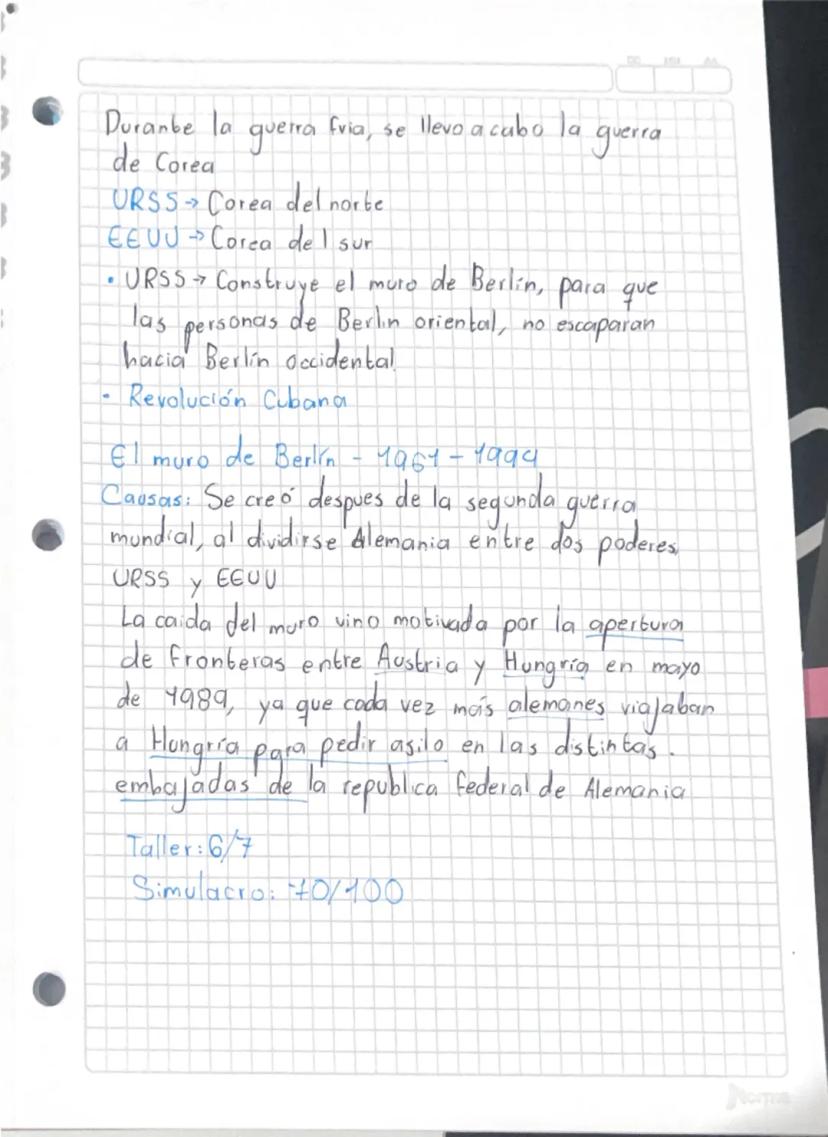 Durante la guerra fria, se llevo a cabo la guerra
de Corea
URSS → Corea del norte
EEUU → Corea del sur
• URSS → Construye el muro de Berlín, para que
las personas de Berlin oriental, no escaparan
hacia Berlín occidental
• Revolución Cubana
El muro de Berlín - 1961 - 1994
Causas: Se creó despues de la segunda guerra
mundial, al dividirse Alemania entre dos poderes,
URSS y EEUU
La caida del muro vino motivada por la apertura
de fronteras entre Austria y Hungría en mayo
de 1989, ya que cada vez más alemanes viajaban
a Hungría para pedir asilo en las distintas.
embajadas de la republica federal de Alemania
Taller: 6/7
Simulacro: 70/100
Norma